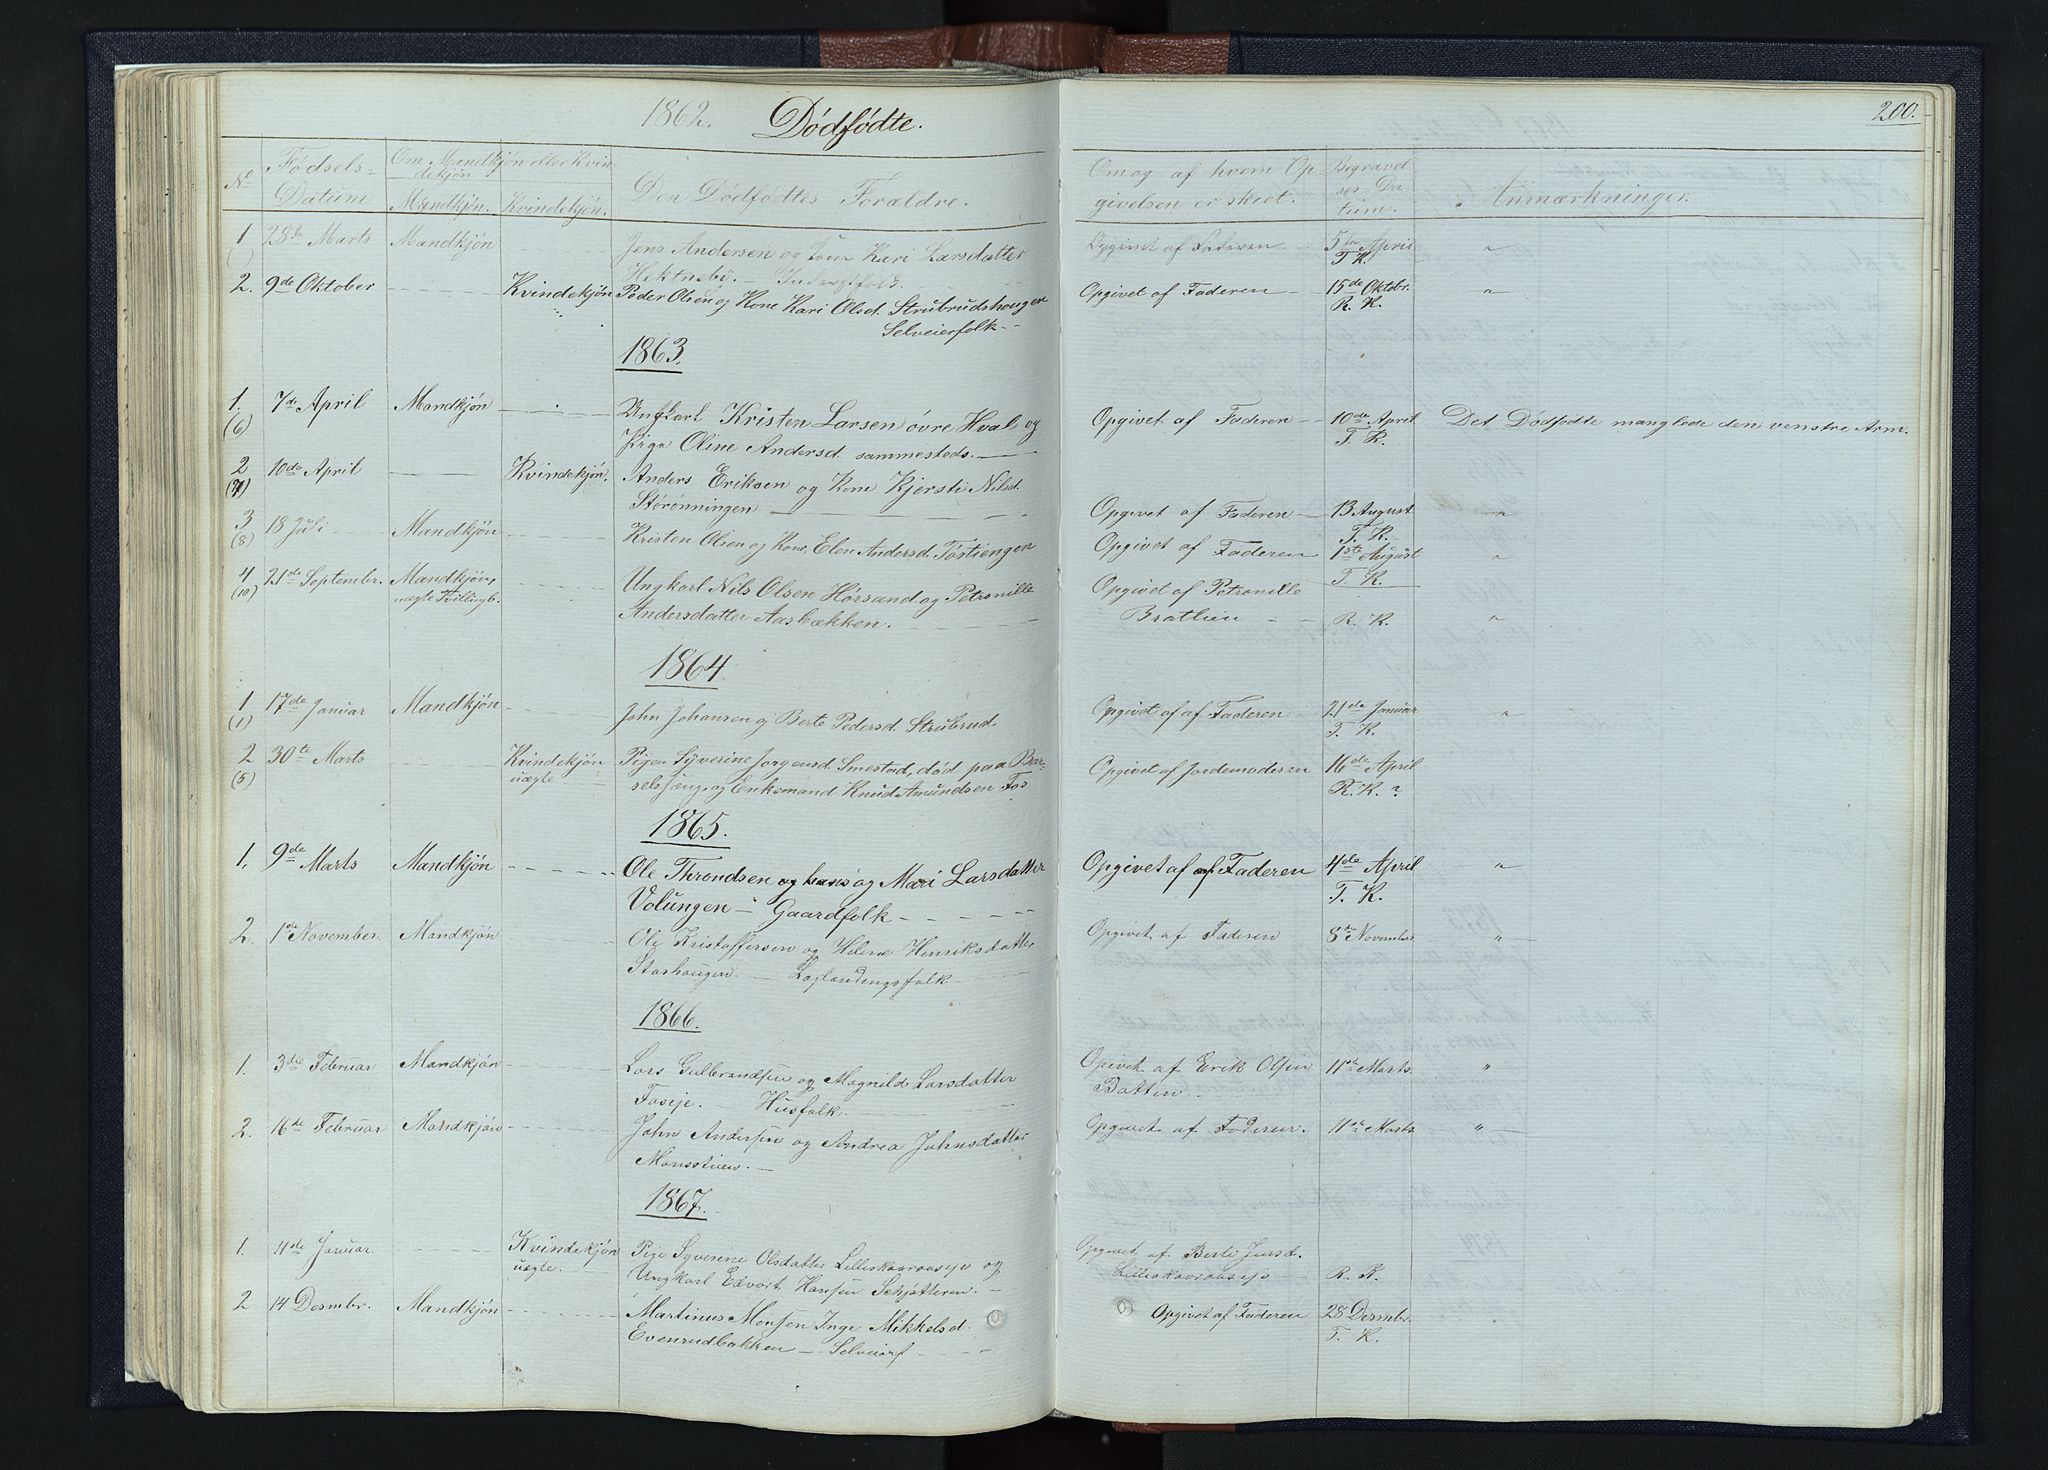 1862. Dødfødte.
No Fødsels-Datum Om Mandkjøn eller Kvindekjøn Mandkjøn. Kvindekjøn. Den Dødfødtes Forældre.
1 28de Marts Mandkjøn Jens Andersen og Kone Kari Larsdatter
2. 9de Oktober Kvindekjøn Peder Olsen og Kone Kari Olsd. Strubrudshougen
Selveierfolk
1863.
1. (6) 7de April Mandkjøn Ungkarl Kristen Larsen øvre Hval og
Pige Oline Andersd. sammesteds.
2 (7) 10de April Kvindekjøn. Anders Eriksen og Kone Kjersti Nilsd.
Størønningen
3 (8) 18 Juli Mandkjøn Kristen Olsen og Kone Elen Andersd. Tostiengen
4 (10) 21de Septembr. Mandkjøn, Ungkarl Nils Olsen Hørsand og Petronille
uægte Tvillingb. Andersdatter Aasbækken.
1864
1 (1) 17de Januar Mandkjøn John Johansen og Berte Pedersd. Strubrud.
2 (5) 30te Marts Kvindekjøn Pigen Syverine Jørgensd. Smestad, død paa Bar-
uægte selsseng, og Enkemand Knud Amundsen Fos
1865.
1. 9de Marts Mandkjøn Ole Throndsen og Mari Larsdatter
Volungen – Gaardfolk
2. 1de November. Mandkjøn Ole Kristoffersen og Helene Henriksdatter
Storhougen.
1866.
1. 3die Februar Mandkjøn Lars Gulbrandsen og Magnild Larsdatter
Foseje. – Husfolk.
2. 16de Februar Mandkjøn John Andersen og Andrea Johnsdatter
Monsstuen.
1867.
1. 11de Januar. Kvindekjøn Pige Syverine Olsdatter Lilleskovroaseje og
uægte. Ungkarl Edvart Hansen Schjøtteren.
2 14 Desmbr. Mandkjøn Martinus Monsen Inge Mikkelsd.
Evenrudbakken – Selveierf
200.
Om og af hvem Op-givelsen er skeet. Begravel-ses-Da-tum. Anmærkninger.
Opgivet af Faderen 5te April "
T. K.
Opgivet af Faderen 15de Oktobr. "
R. K.
Opgivet af Faderen 10de April Det Dødfødte manglede den venstre Arm.
T. K.
Opgivet af Faderen 13 August "
T. K.
Opgivet af Faderen 1ste August "
T. K.
Opgivet af Petronille
Brattlien R. K. "
Opgivet af af Faderen 21de Januar "
T. K.
Opgivet af Jordemoderen 16de April
R. K. ?
Opgivet af af Faderen 4de April "
T. K.
Opgivet af Faderen 8de November "
Opgivet af Erik Olsen 11te Marts "
Batten.
Opgivet af Faderen. 11te Marts "
Opgivet af Berte
Lilleskovroaseje R. K.
Opgivet af Faderen 28 Desmbr.
T. K.